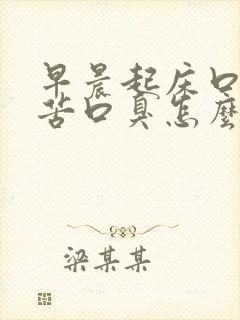 早晨起床口
苦口臭怎麼
梁某某